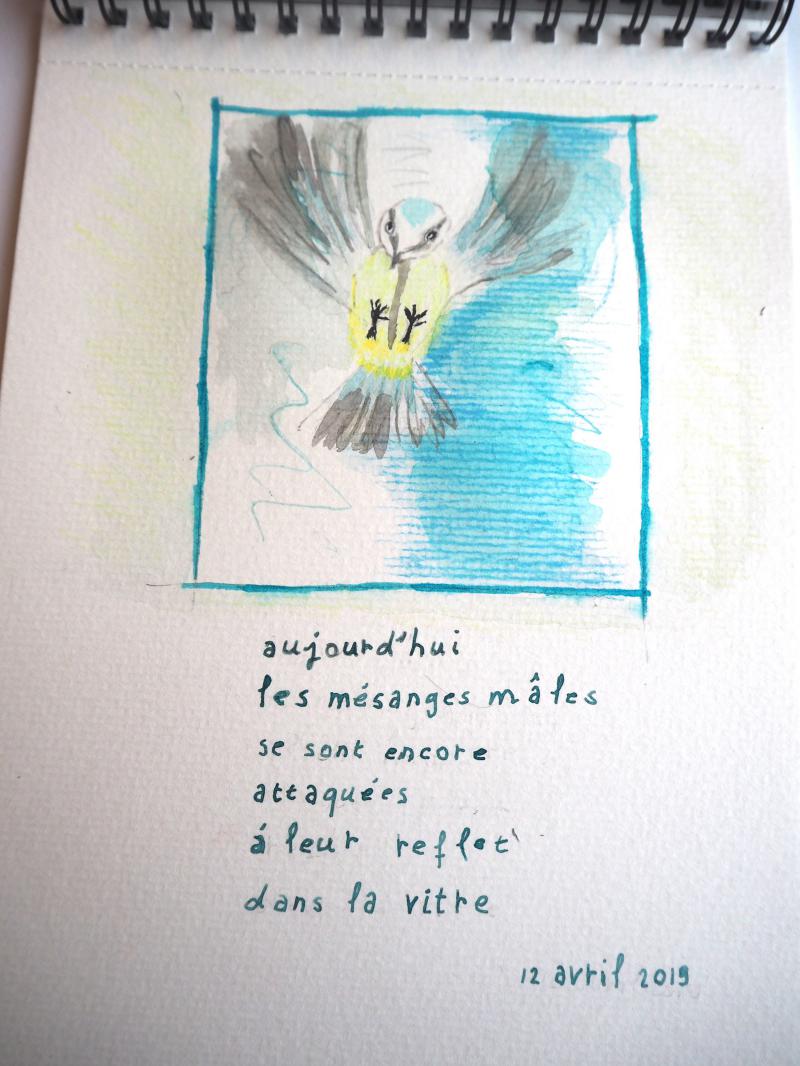 aujourd'hui
les mésanges mâles
se sont encore
attaquées
à leur reflet
dans la vitre
12 avril 2019